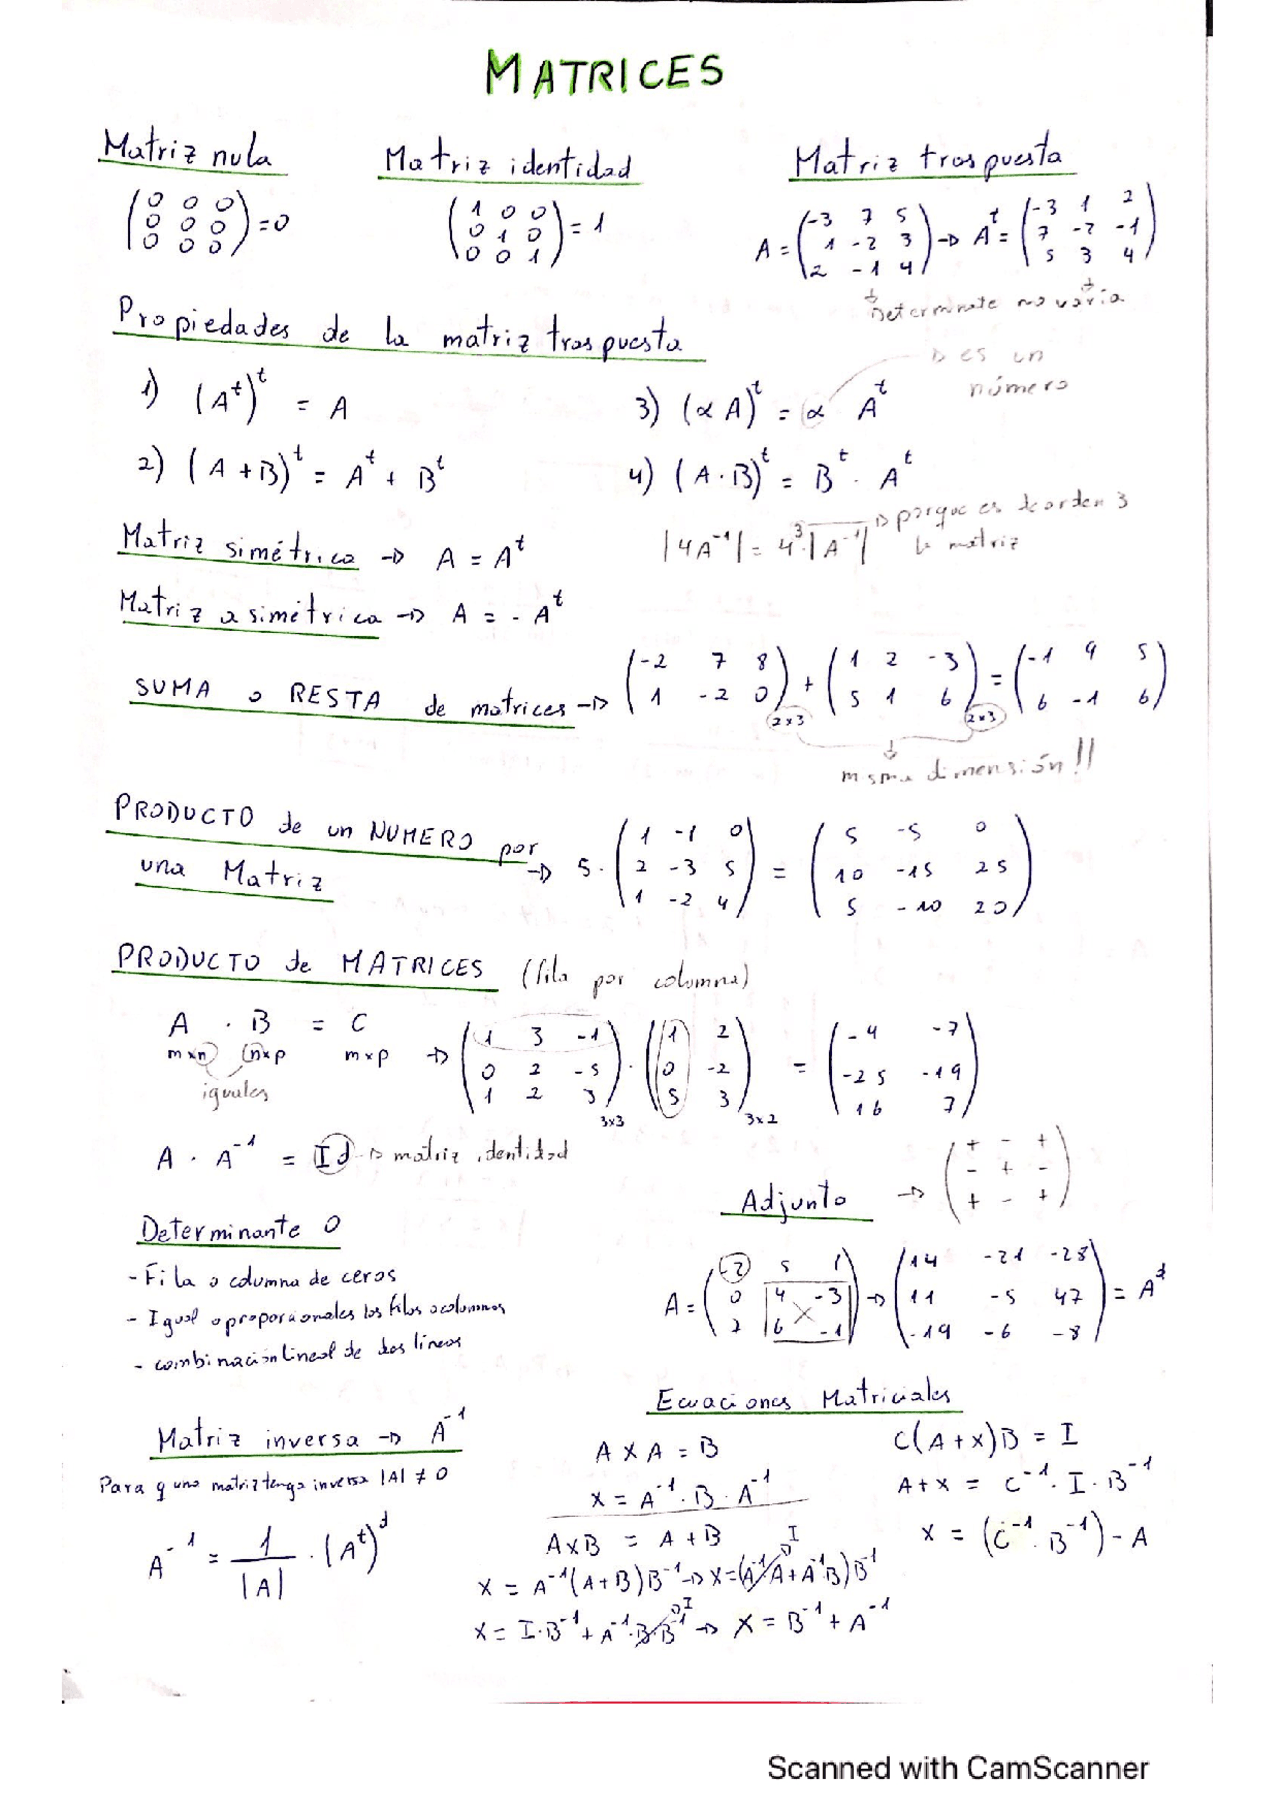 MATRICES
Matriz nula
(0 0 0
0 0 0
0 0 0) = 0
Matriz identidad
(1 0 0
0 1 0
0 0 1) = 1
Matriz traspuesta
A = (-3 7 5
1 -2 3
2 -1 4) → Aᵗ = (-3 1 2
7 -2 -1
5 3 4)
Determinate no varia
Propiedades de la matriz traspuesta
1) (Aᵗ)ᵗ = A
2) (A + B)ᵗ = Aᵗ + Bᵗ
3) (α A)ᵗ = α Aᵗ
→ es un
número
4) (A · B)ᵗ = Bᵗ · Aᵗ
Matriz simétrica → A = Aᵗ
|4A⁻¹| = 4³·|A⁻¹| → porque es de orden 3
la matriz
Matriz asimétrica → A = - Aᵗ
SUMA o RESTA de matrices → (-2 7 8
1 -2 0) 2x3 + (1 2 -3
5 1 6) 2x3 = (-1 9 5
6 -1 6)
misma dimensión!!
PRODUCTO de un NUMERO por
una Matriz
→ 5 · (1 -1 0
2 -3 5
1 -2 4) = (5 -5 0
10 -15 25
5 -10 20)
PRODUCTO de MATRICES (fila por columna)
A · B = C
mxn nxp mxp
iguales
→ (1 3 -1
0 2 -5
1 2 3) 3x3 · (1 2
0 -2
5 3) 3x2 = (-4 -7
-25 -19
16 7)
A · A⁻¹ = Id → matriz identidad
Adjunto → (+ - +
- + -
+ - +)
Determinante 0
- Fila o columna de ceros
- Igual o proporcionales las filas o columnas
- combinación lineal de dos líneas
A = (-2 5 1
0 4 -3
2 6 -1) → (14 -21 -28
11 -5 47
-19 -6 -8) = Aᵈ
Matriz inversa → A⁻¹
Para q una matriz tenga inversa |A| ≠ 0
A⁻¹ = 1/|A| · (Aᵗ)ᵈ
Ecuaciones Matriciales
A X A = B
X = A⁻¹ · B · A⁻¹
AxB = A + B
X = A⁻¹(A+B)B⁻¹ → X = (A⁻¹A + A⁻¹B)B⁻¹
I
X = I·B⁻¹ + A⁻¹·B·B⁻¹ → X = B⁻¹ + A⁻¹
I
C(A+x)B = I
A+x = C⁻¹ · I · B⁻¹
X = (C⁻¹ · B⁻¹) - A
Scanned with CamScanner